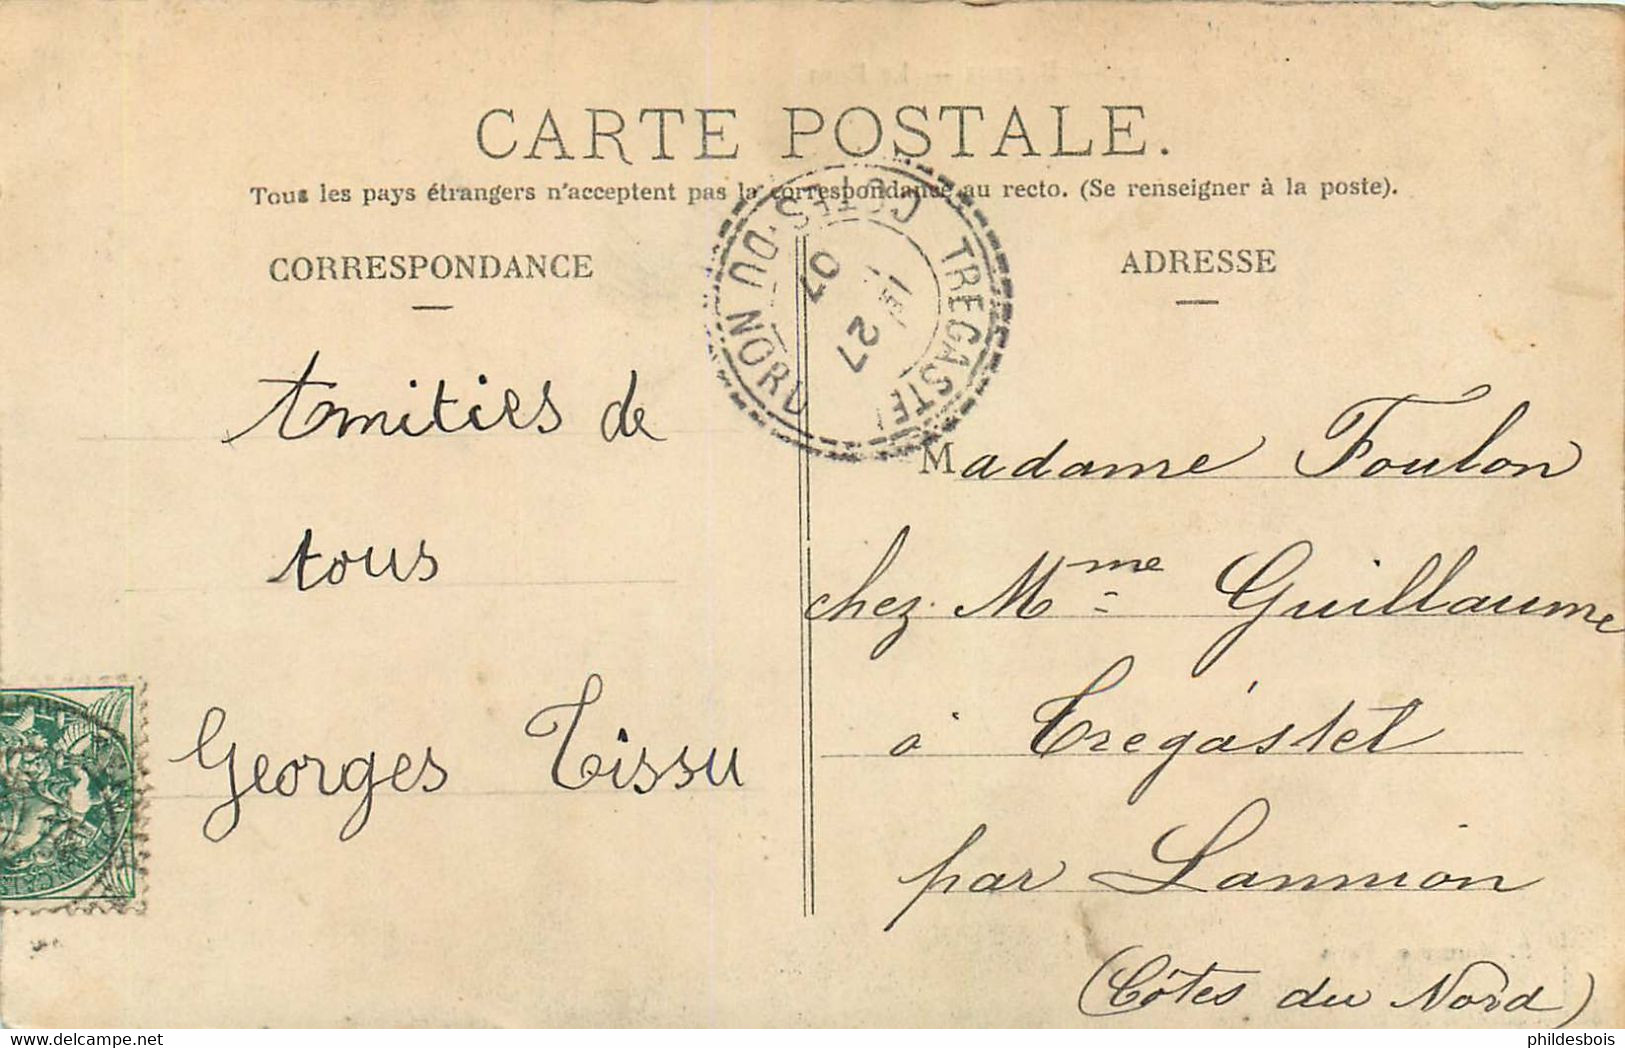 CARTE POSTALE.
Tous les pays étrangers n'acceptent pas la correspondance au recto. (Se renseigner à la poste).
CORRESPONDANCE
Amitiés de
tous
Georges Tissu
TREGASTEL
COTES-DU-NORD
27
07
ADRESSE
Madame Foulon
chez Mme Guillaume
à Tregástel
par Lannion
(Côtes du Nord)
https://www.delcampe.net
phildesbois